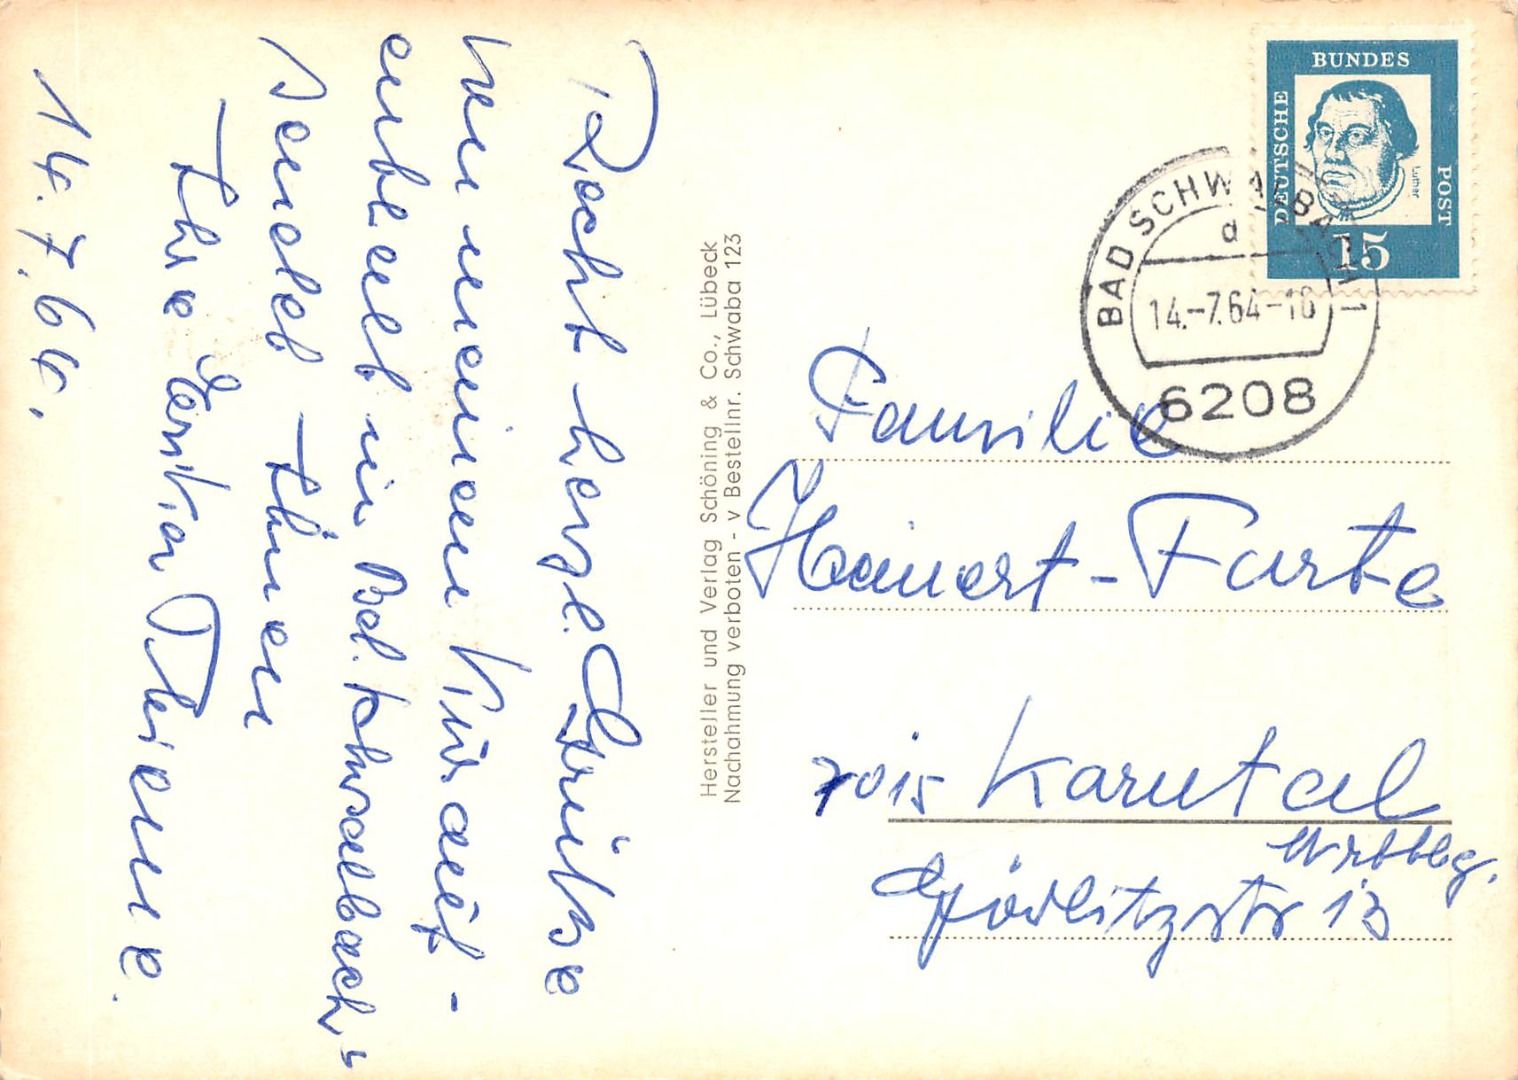 Recht herzl. Grüße
von meinem Kurauf-
enthalt in Bad Schwalbach,
sendet Ihnen
Ihre
14.7.64.
Hersteller und Verlag Schöning & Co., Lübeck
Nachahmung verboten - v Bestellnr. Schwaba 123
DEUTSCHE BUNDES POST
Luther
15
BAD SCHWALBACH 1
d
14.-7.64-
6208
Familie
7015 Korntal
Wrttbg.